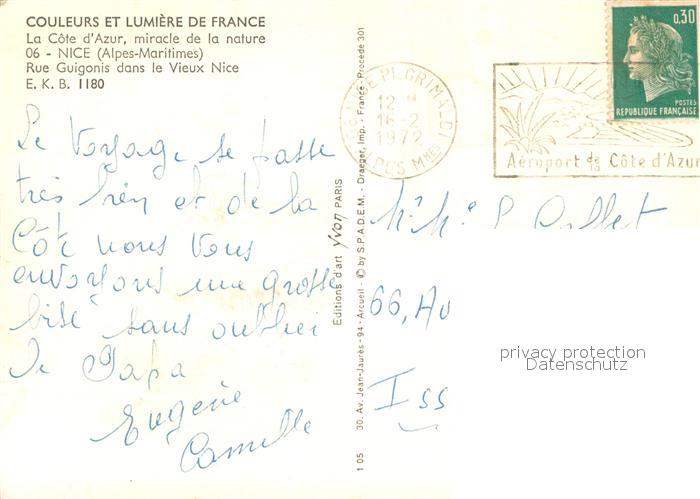 COULEURS ET LUMIÈRE DE FRANCE
La Côte d'Azur, miracle de la nature
06 - NICE (Alpes-Maritimes)
Rue Guigonis dans le Vieux Nice
E. K. B. 1180
Le Voyage se passe
très bien et de la
Côte nous vous
envoyons une grosse
bise sans oublier
le Papa
Eugénie
Camille
Editions d'art yvon PARIS
30. Av. Jean-Jaurès - 94 - Arcueil - © by S.P.A.D.E.M. - Draeger, Imp. - France - Procédé 301
1 05
12 H
16-2
1972
ALPES Mmes
0,30
POSTES
REPUBLIQUE FRANÇAISE
Aéroport de la Côte d'Azur
66, Av
Iss
privacy protection
Datenschutz